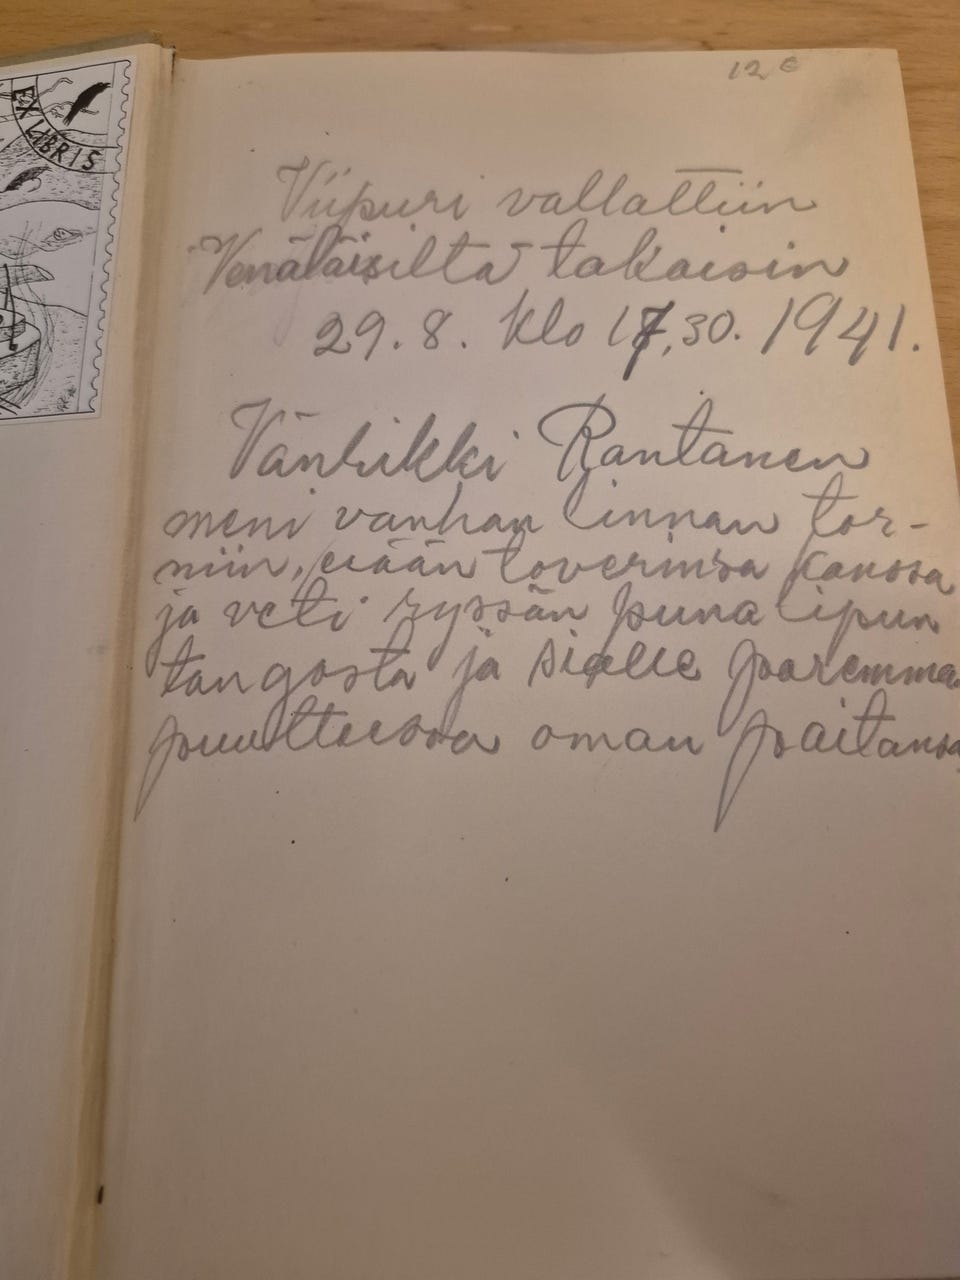 EX LIBRIS
12 €
Viipuri vallattiin
Venäläisiltä takaisin
29.8. klo 17,30. 1941.
Vänrikki Rantanen
meni vanhan linnan tor-
niin, erään toverinsa kanssa
ja veti ryssän puna lipun
tangosta ja sialle paremma
puutteessa oman paitansa